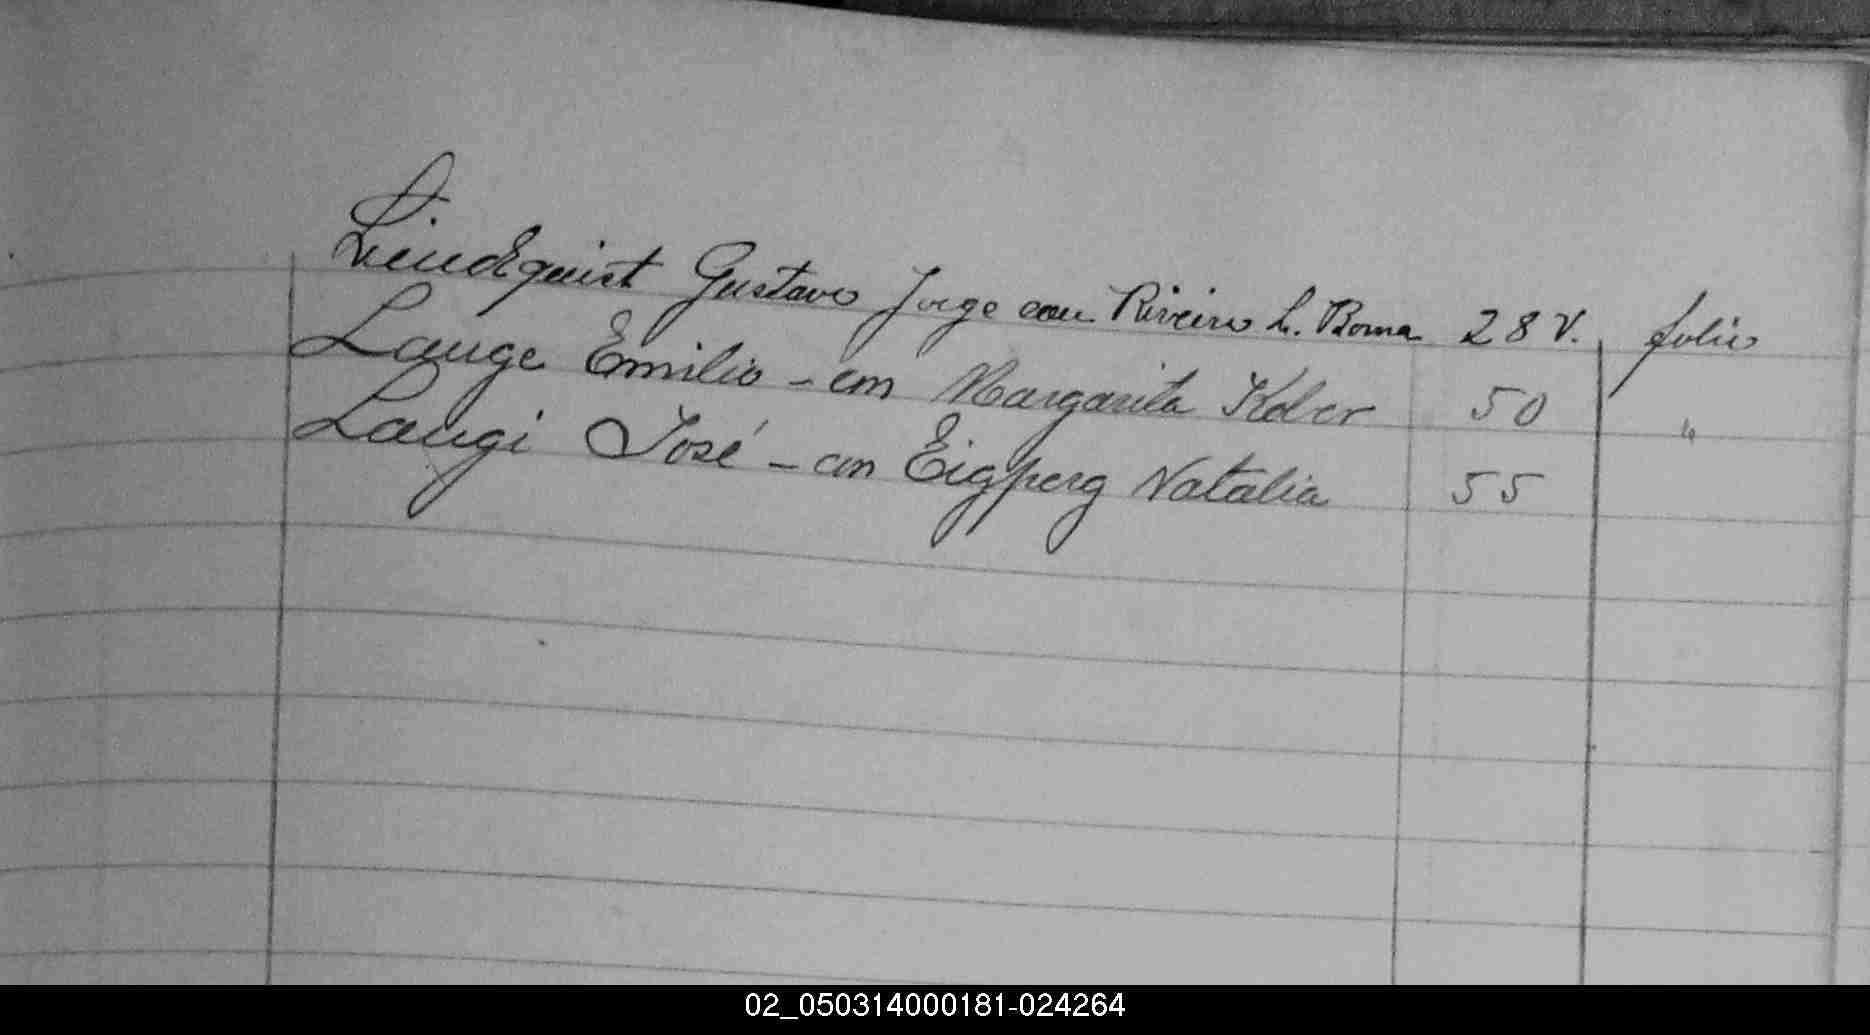 Lindquist Gustavo Jorge con Riveiro L. Roma 28 V. folio
Lange Emilio - con Margarita Kober 50 "
Laugi José - con Eigperg Natalia 55
02_050314000181-024264